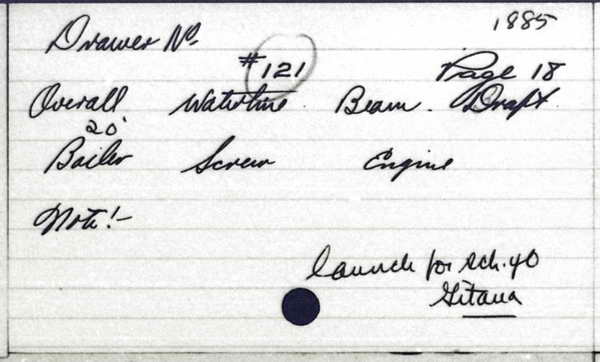 1885
Drawer No.
#121 Page 18
Overall Waterline Beam. Draft
20'
Boiler Screw Engine
Note!-
launch for sch. yo
Gitana